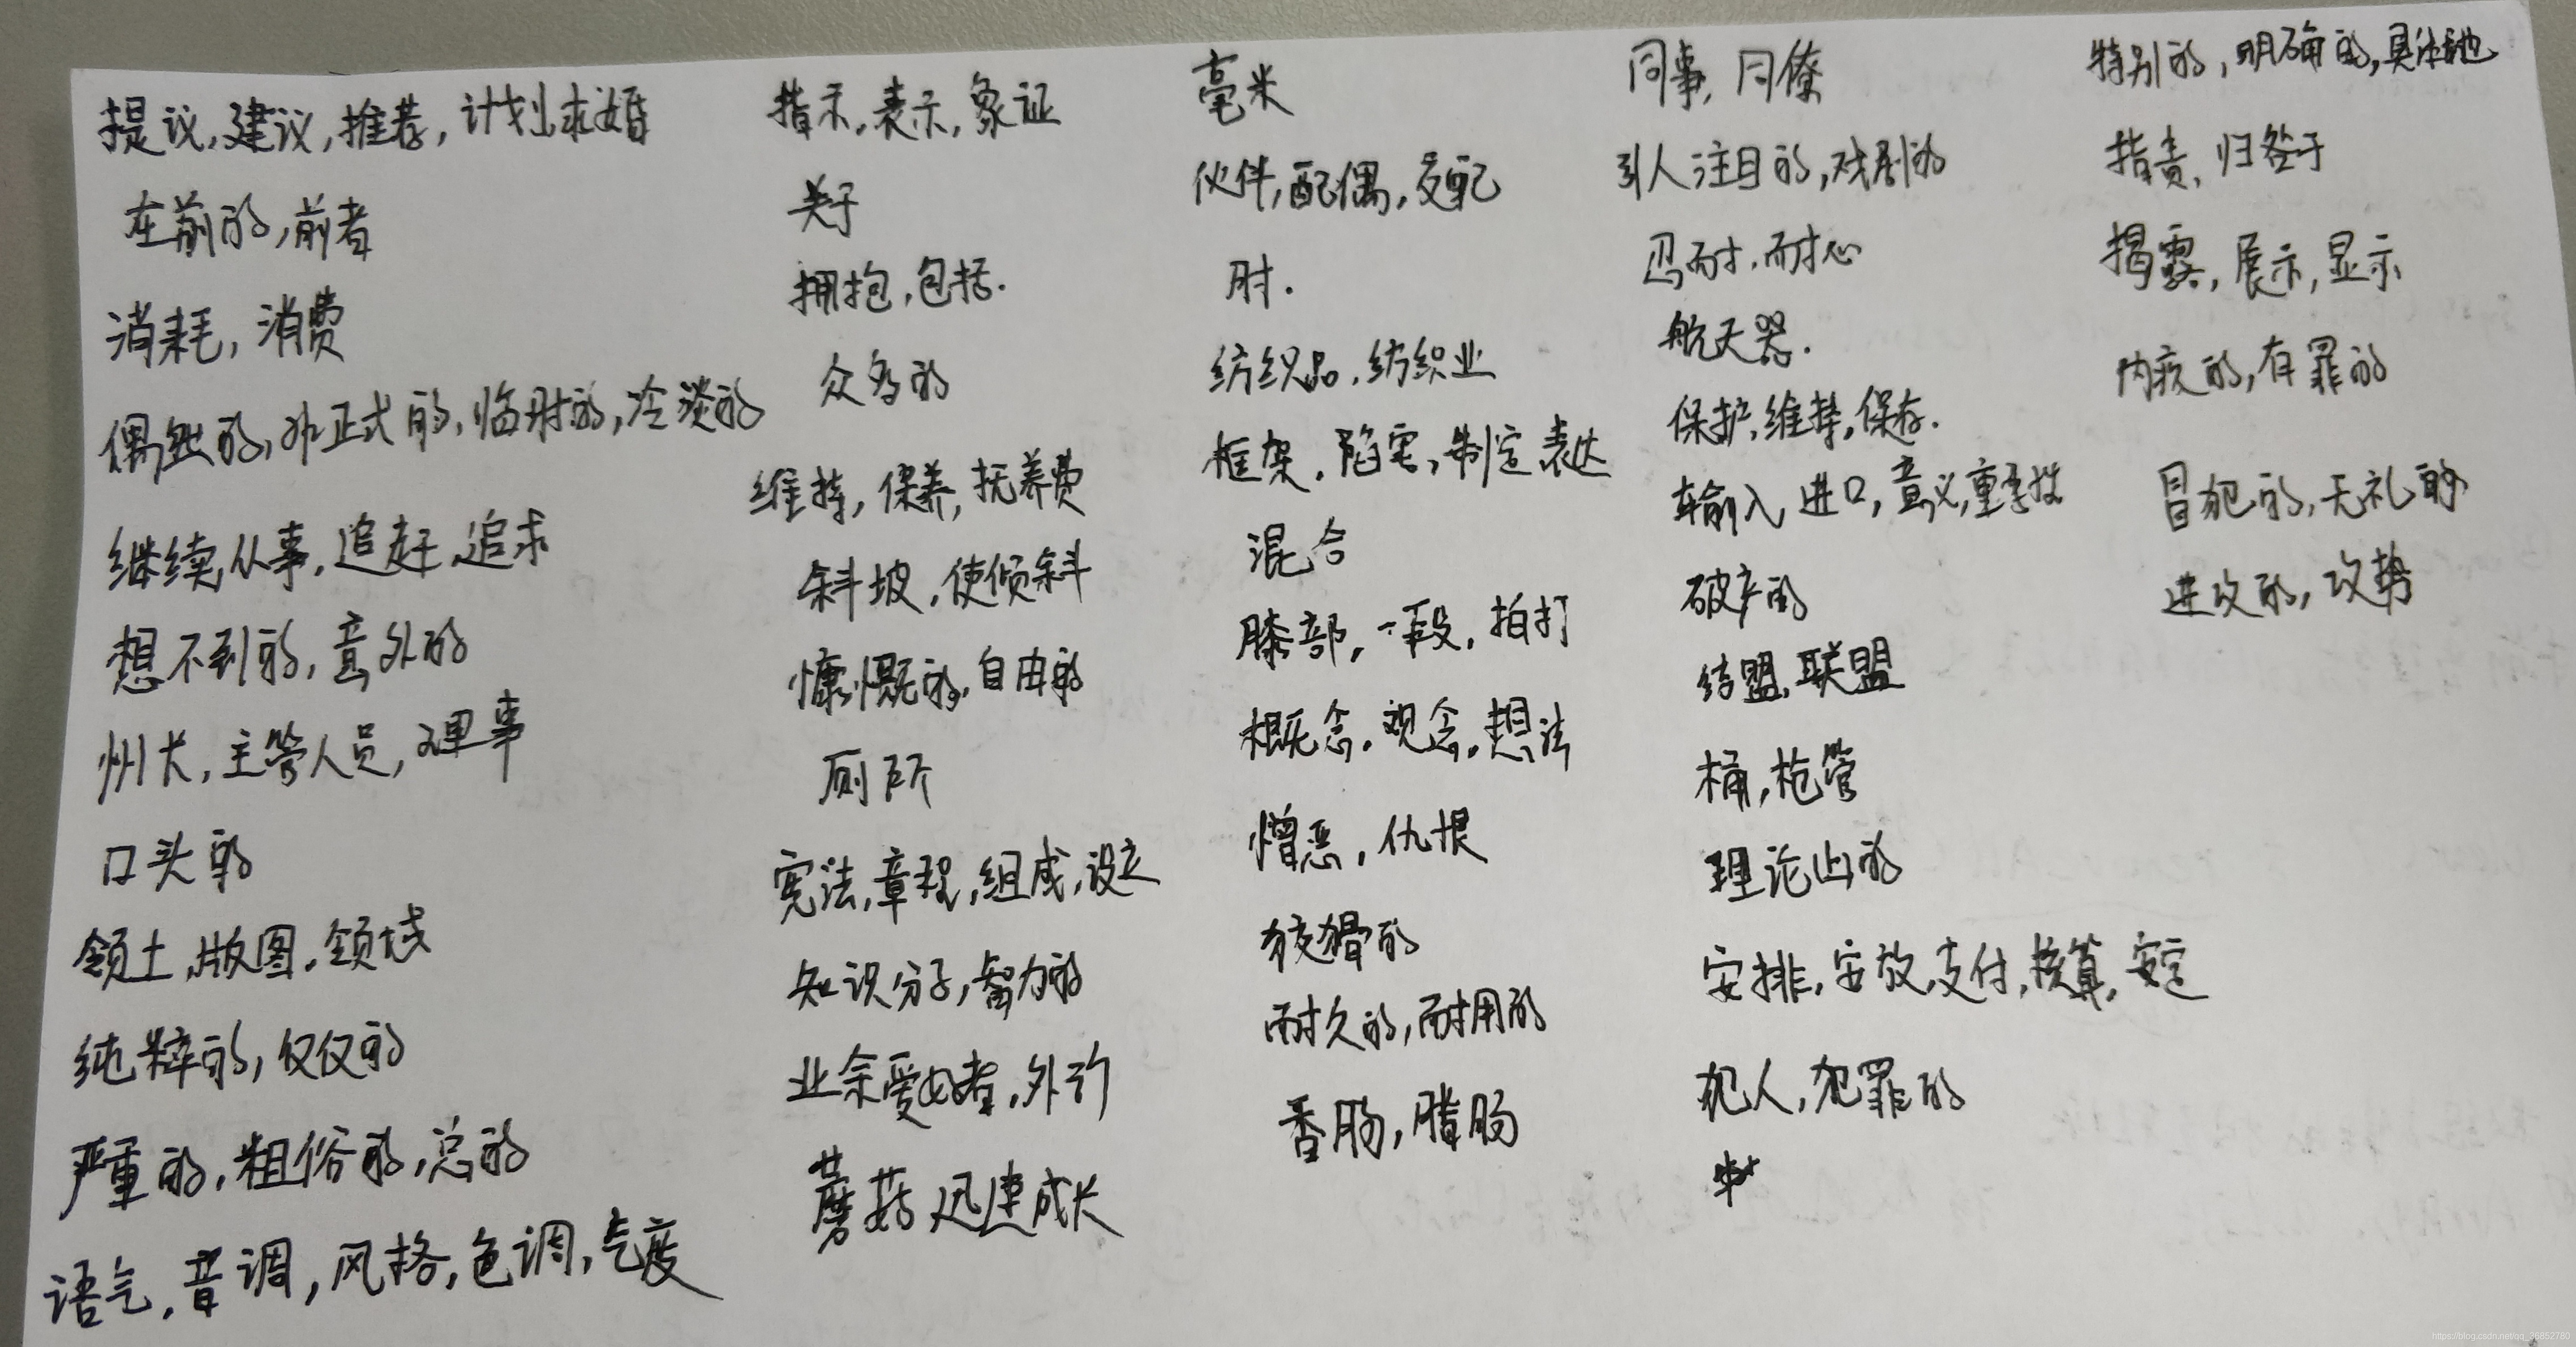 提议,建议,推荐,计划,求婚
在前的,前者
消耗,消费
偶然的,非正式的,临时的,冷淡的
继续,从事,追赶,追求
想不到的,意外的
州长,主管人员,理事
口头的
领土,版图,领域
纯粹的,仅仅的
严重的,粗俗的,总的
语气,音调,风格,色调,气度
指示,表示,象证
关于
拥抱,包括.
众多的
维持,保养,抚养费
斜坡,使倾斜
慷慨的,自由的
厕所
宪法,章程,组成,设立
知识分子,智力的
业余爱好者,外行
蘑菇,迅速成长
毫米
伙伴,配偶,交配
肘.
纺织品,纺织业
框架,陷害,制定,表达
混合
膝部,一段,拍打
概念,观念,想法
憎恶,仇恨
狡猾的
耐久的,耐用的
香肠,腊肠
同事,同僚
引人注目的,戏剧的
忍耐,耐心
航天器.
保护,维持,保存.
输入,进口,意义,重要性
破产的
结盟,联盟
桶,枪管
理论上的
安排,安放,支付,核算,安定
犯人,犯罪的
特别的,明确的,具体地
指责,归咎于
揭露,展示,显示
内疚的,有罪的
冒犯的,无礼的
进攻的,攻势
https://blog.csdn.net/qq_36852780